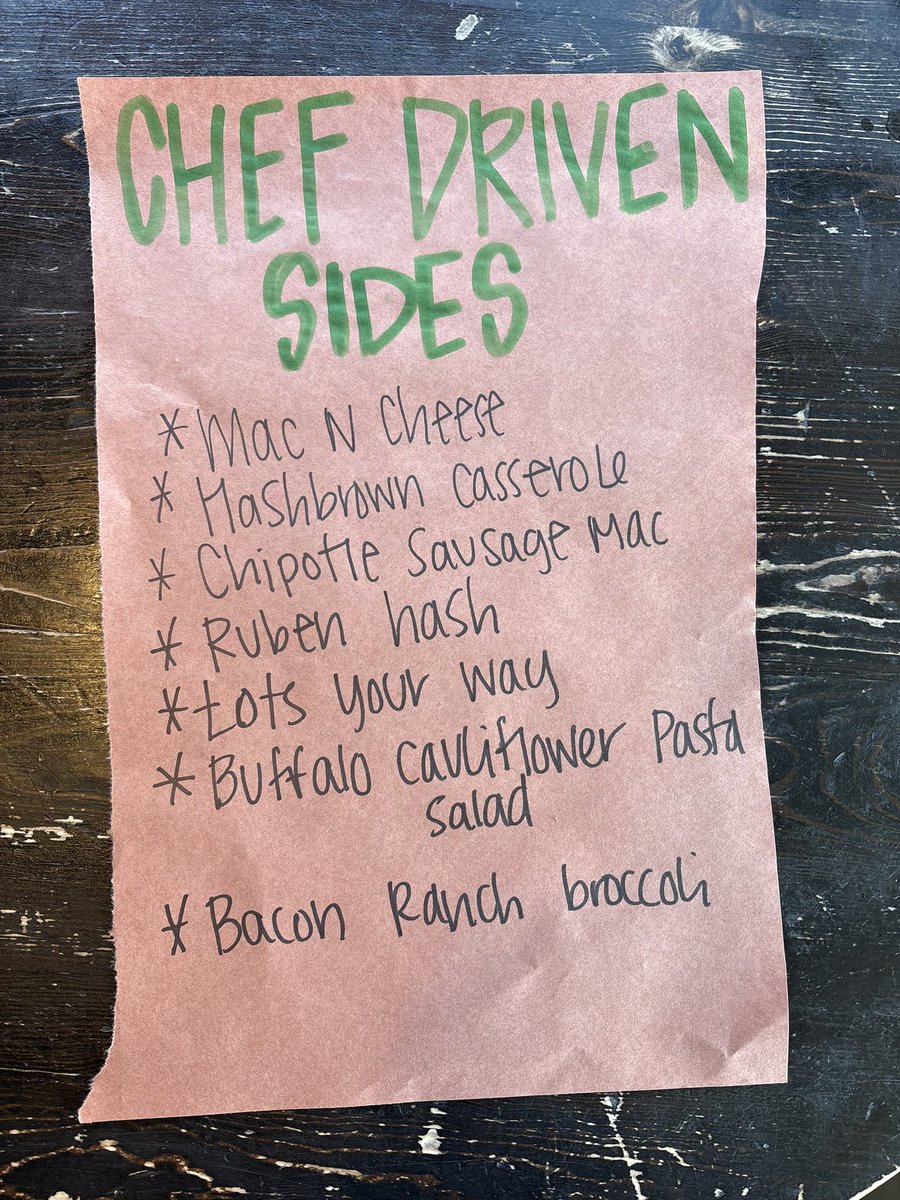 CHEF DRIVEN
SIDES
* Mac N Cheese
* Hashbrown Casserole
* Chipotle Sausage Mac
* Ruben hash
* tots your way
* Buffalo Cauliflower Pasta
salad
* Bacon Ranch broccoli